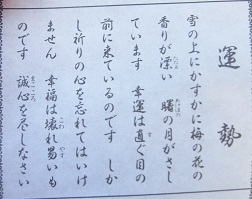 運勢
雪の上にかすかに梅の花の
香りが漂い 曙の月がさし
ています 幸運は直ぐ目の
前に来ているのです しか
し祈りの心を忘れてはいけ
ません 幸福は壊れ易いも
のです 誠心を尽しなさい